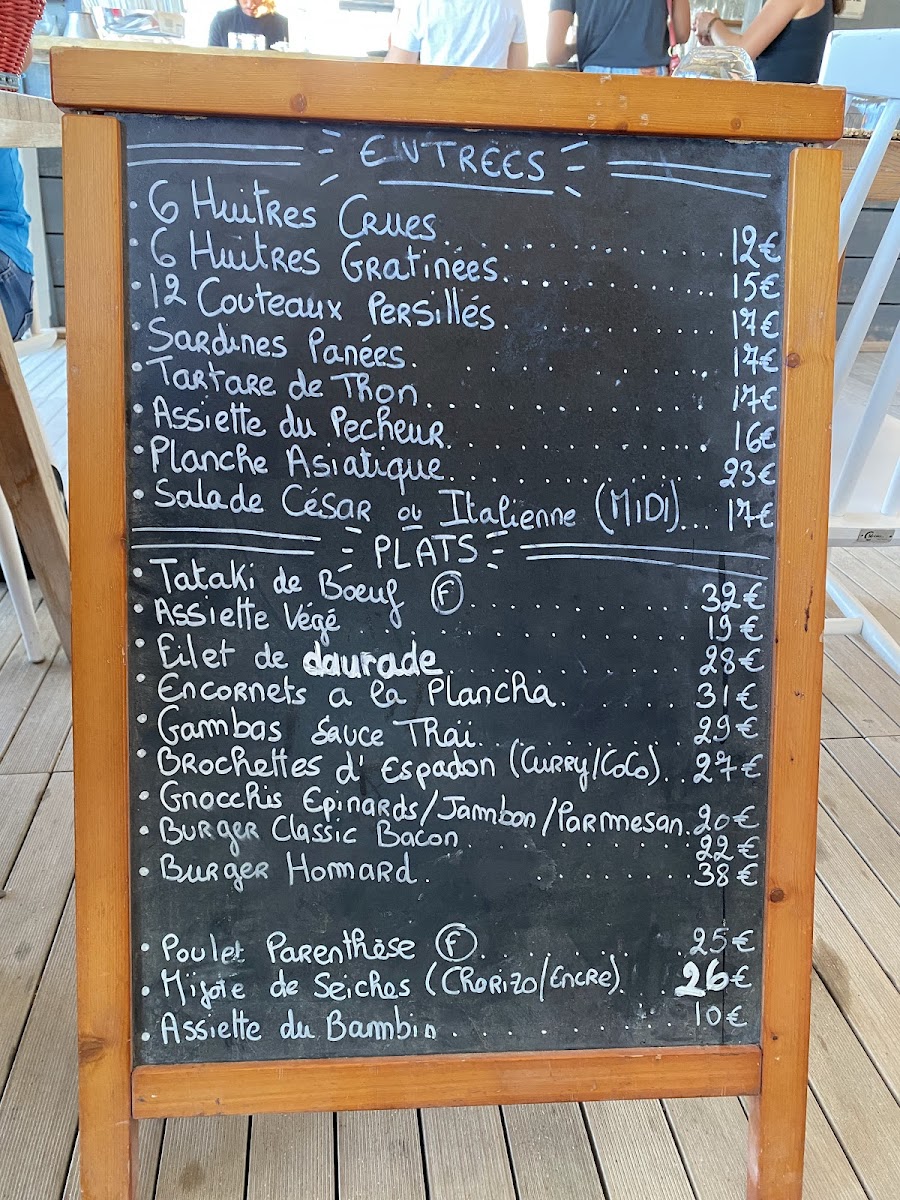 ENTRÉES
• 6 Huitres Crues 12€
• 6 Huitres Gratinées 15€
• 12 Couteaux Persillés 17€
• Sardines Panées 17€
• Tartare de Thon 17€
• Assiette du Pecheur 16€
• Planche Asiatique 23€
• Salade César ou Italienne (MIDI) 17€
PLATS
• Tataki de Boeuf (F) 32€
• Assiette Végé 19€
• Filet de daurade 28€
• Encornets a la Plancha 31€
• Gambas Sauce Thaï 29€
• Brochettes d'Espadon (Curry/Coco) 27€
• Gnocchis Epinards/Jambon/Parmesan 20€
• Burger Classic Bacon 22€
• Burger Homard 38€
• Poulet Parenthèse (F) 25€
• Mijoté de Seiches (Chorizo/Encre) 26€
• Assiette du Bambin 10€